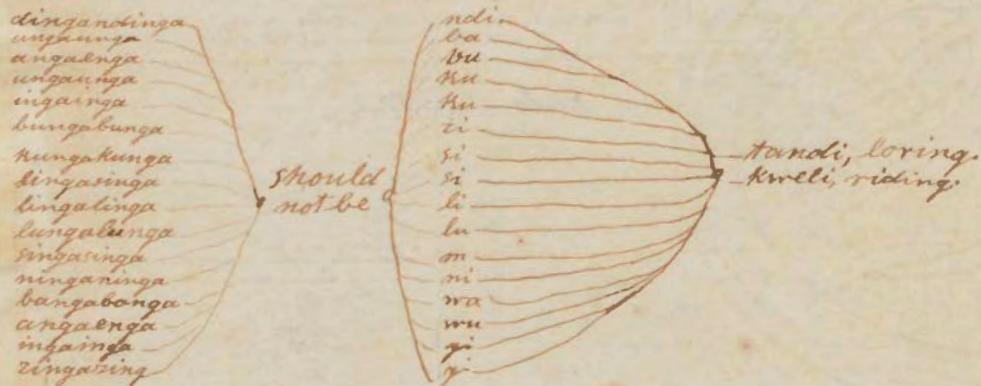 dingandinga
ungaunga
angaenga
ungaunga
ingainga
bungabunga
kungakunga
singasinga
lingalinga
lungalunga
singasinga
ninganinga
bangabanga
angaenga
ingainga
zingazing
should
not be
ndi
ba
bu
ku
ku
zi
si
si
li
lu
m
ni
wa
wu
yi
yi
tandi, loving.
kweli, riding.